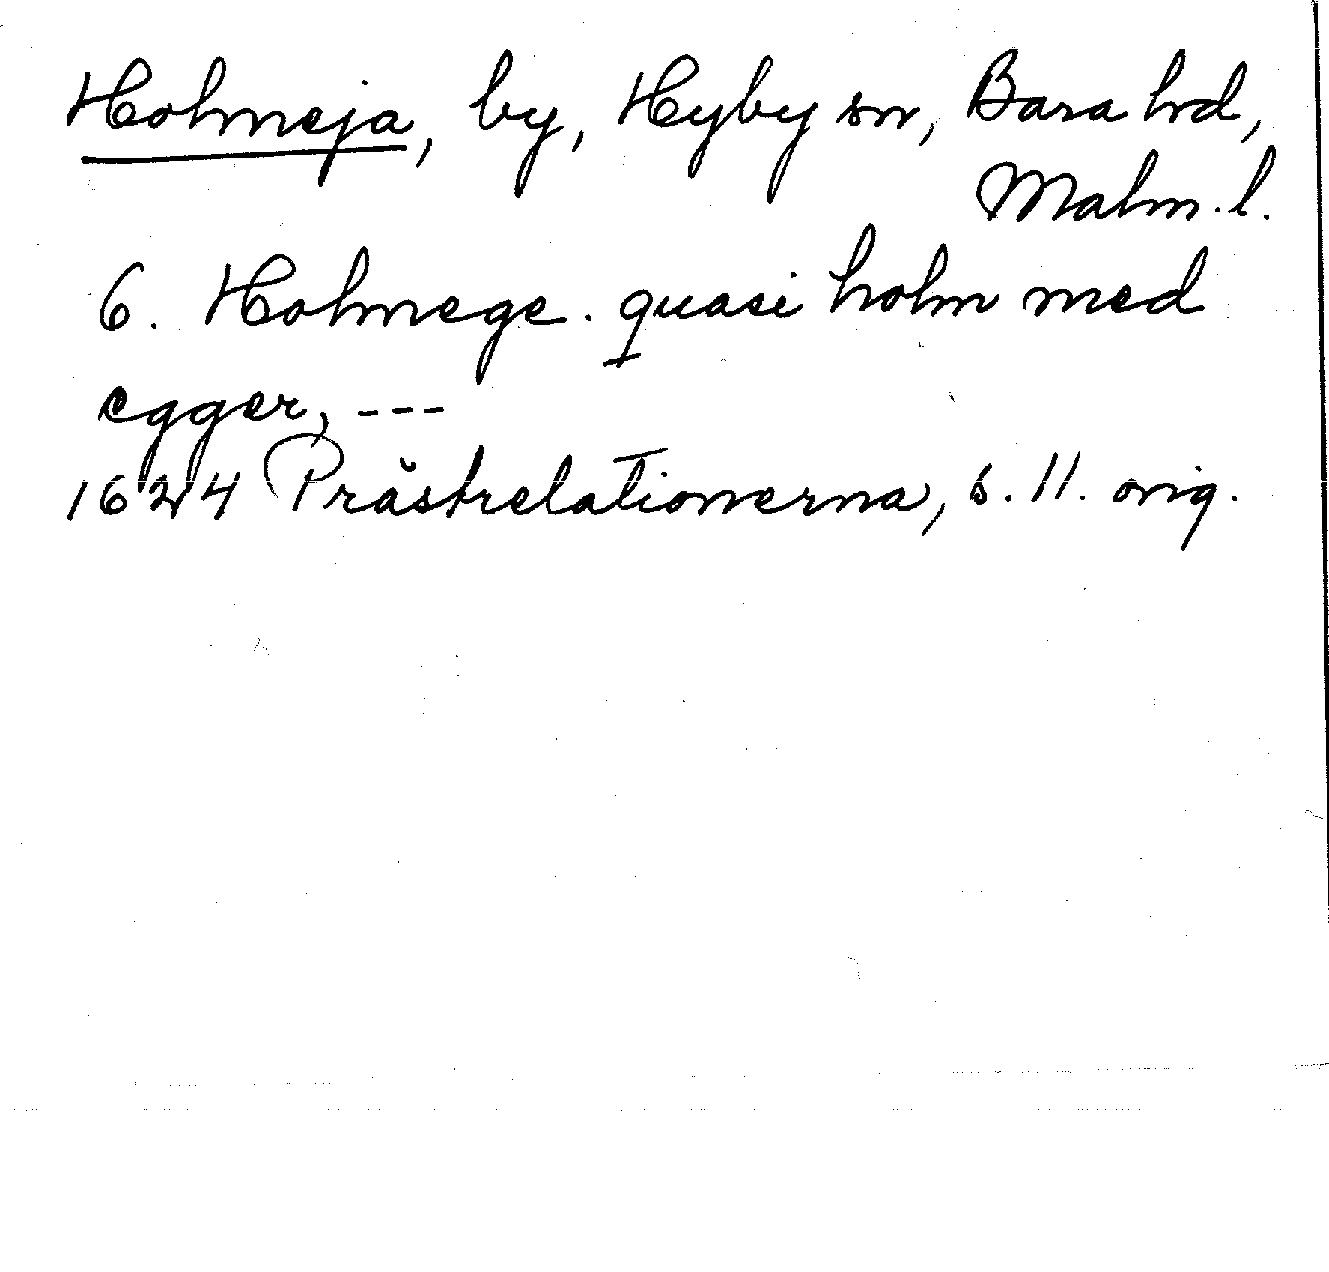 Holmeja, by, Hyby sn, Bara hd,
Malm. l.
6. Holmege. quasi holm med
egger, ---
1624 Prästrelationerna, s. 11. orig.